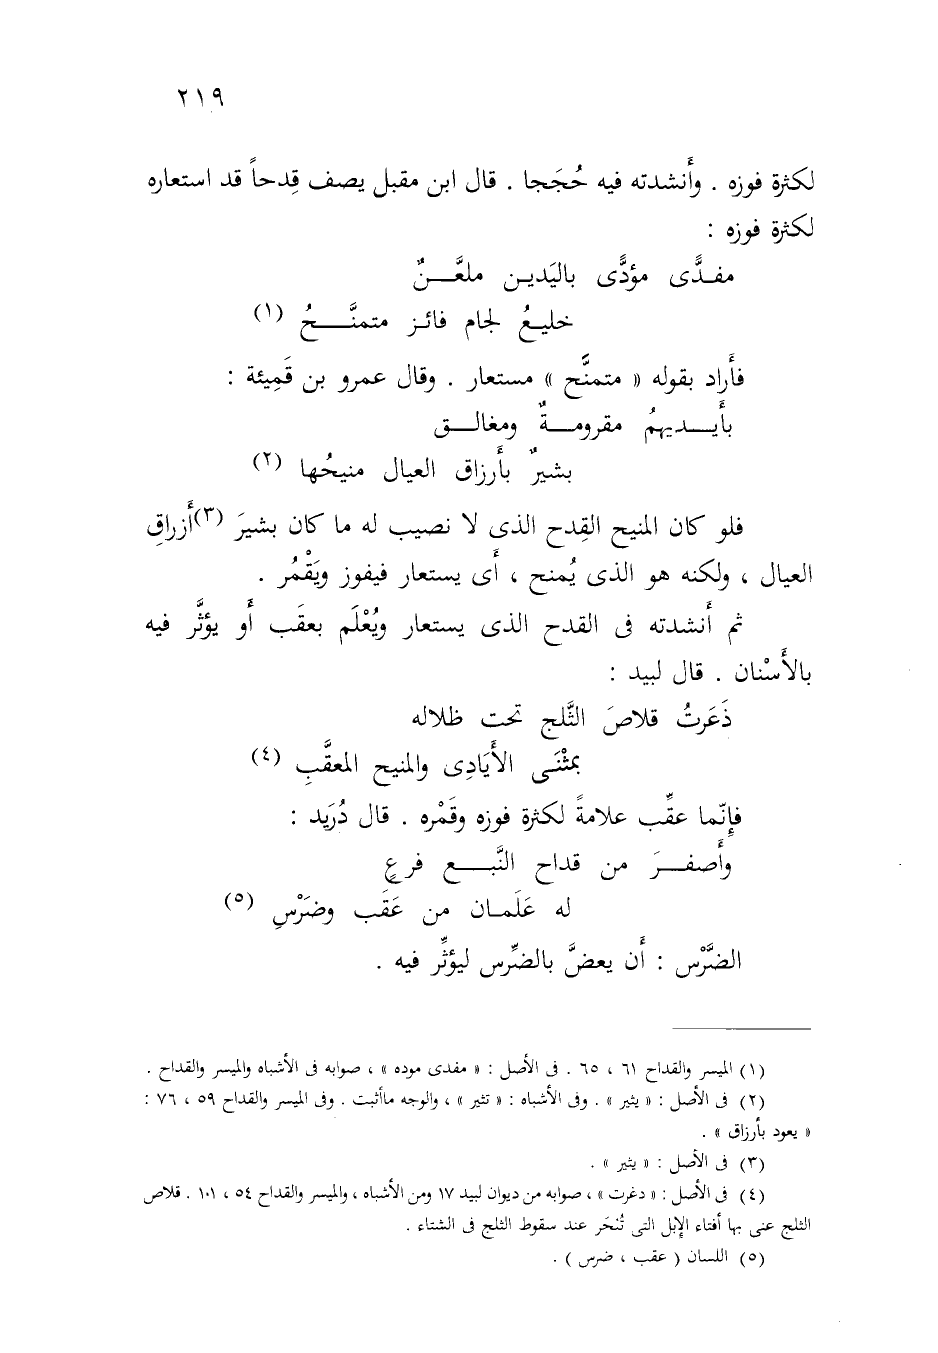 ٢١٩
لكثرة فوزه . وأَنشدته فيه حُجَجا . قال ابن مقبل يصف قِدحاً قد استعاره
لكثرة فوزه :
مفـدًّى مؤدًّى باليَدين ملعَّـــنٌ
خليعُ لجام فائـز متمنَّـــحُ (١)
فأَراد بقوله « متمنَّح » مستعار . وقال عمرو بن قَمِيئة :
بأَيـــديهمُ مقرومـــةٌ ومغالـــق
بشيرٌ بأَرزاق العيال منيحُها (٢)
فلو كان المنيح القِدح الذى لا نصيب له ما كان بشيرَ (٣)أَزراقِ
العيال ، ولكنه هو الذى يُمنح ، أَى يستعار فيفوز ويَقْمُر .
ثم أَنشدته فى القدح الذى يستعار ويُعْلَم بعقَب أَو يؤثَّر فيه
بالأَسْنان . قال لبيد :
ذَعَرتُ قلاصَ الثَّلج تحت ظلاله
بمثْنَى الأَيَادِى والمنيح المعقَّبِ (٤)
فإِنّما عقِّب علامةً لكثرة فوزه وقَمْره . قال دُرَيد :
وأَصفـــرَ من قداح النَّبـــع فرعٍ
له عَلَمـان من عَقَب وضَرْسِ (٥)
الضَّرْس : أَن يعضَّ بالضِّرس ليؤثِّر فيه .
(١) الميسر والقداح ٦١ ، ٦٥ . فى الأصل : « مفدى موده » ، صوابه فى الأشباه والميسر والقداح .
(٢) فى الأصل : « يثير » . وفى الأشباه : « تثير » ، والوجه ماأثبت . وفى الميسر والقداح ٥٩ ، ٧٦ :
« يعود بأرزاق » .
(٣) فى الأصل : « يثير » .
(٤) فى الأصل : « دغرت » ، صوابه من ديوان لبيد ١٧ ومن الأشباه ، والميسر والقداح ٥٤ ، ١٠١ . قلاص
الثلج عنى بها أفتاء الإبل التى تُنحَر عند سقوط الثلج فى الشتاء .
(٥) اللسان ( عقب ، ضرس ) .